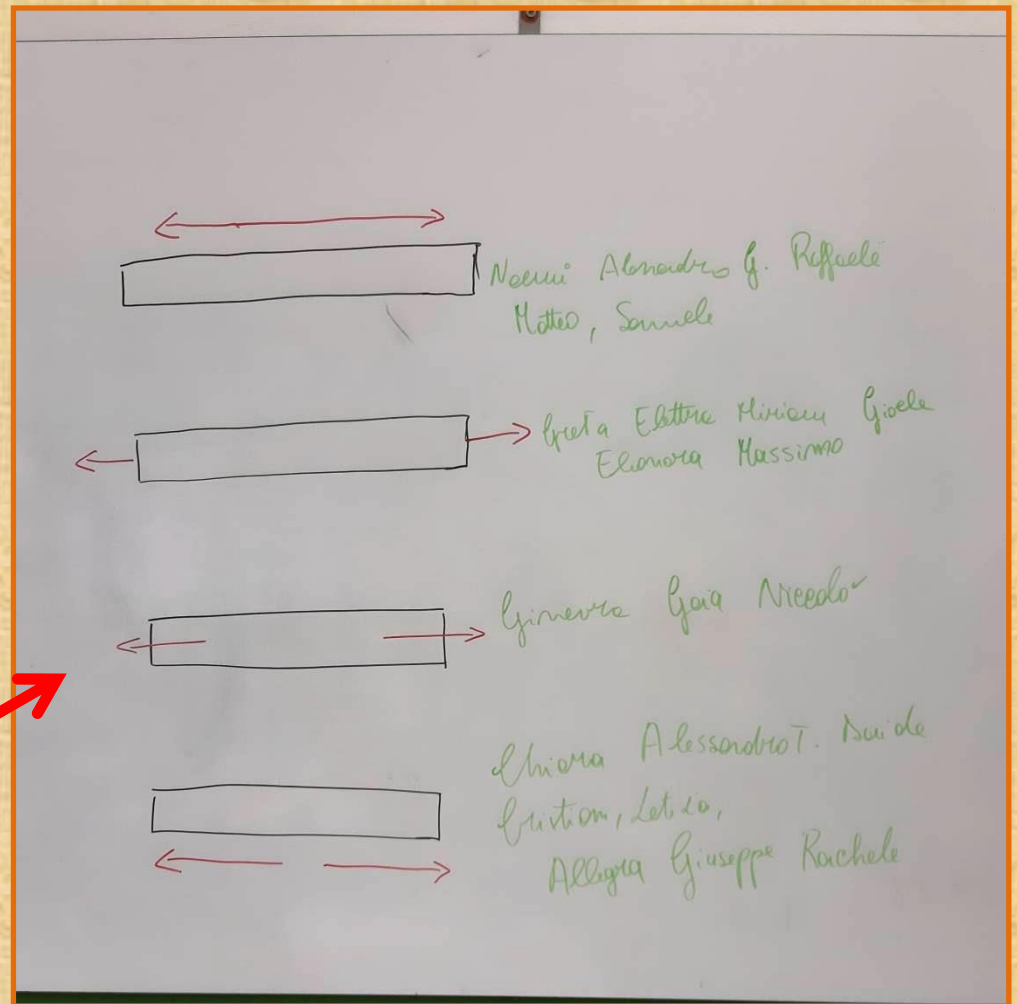 Noemi Alessandro G. Raffaele
Matteo, Samuele
Greta Elettra Miriam Gioele
Eleonora Massimo
Ginevra Gaia Niccolò
Chiara Alessandro T. Davide
Cristian, Letizia,
Allegra Giuseppe Rachele